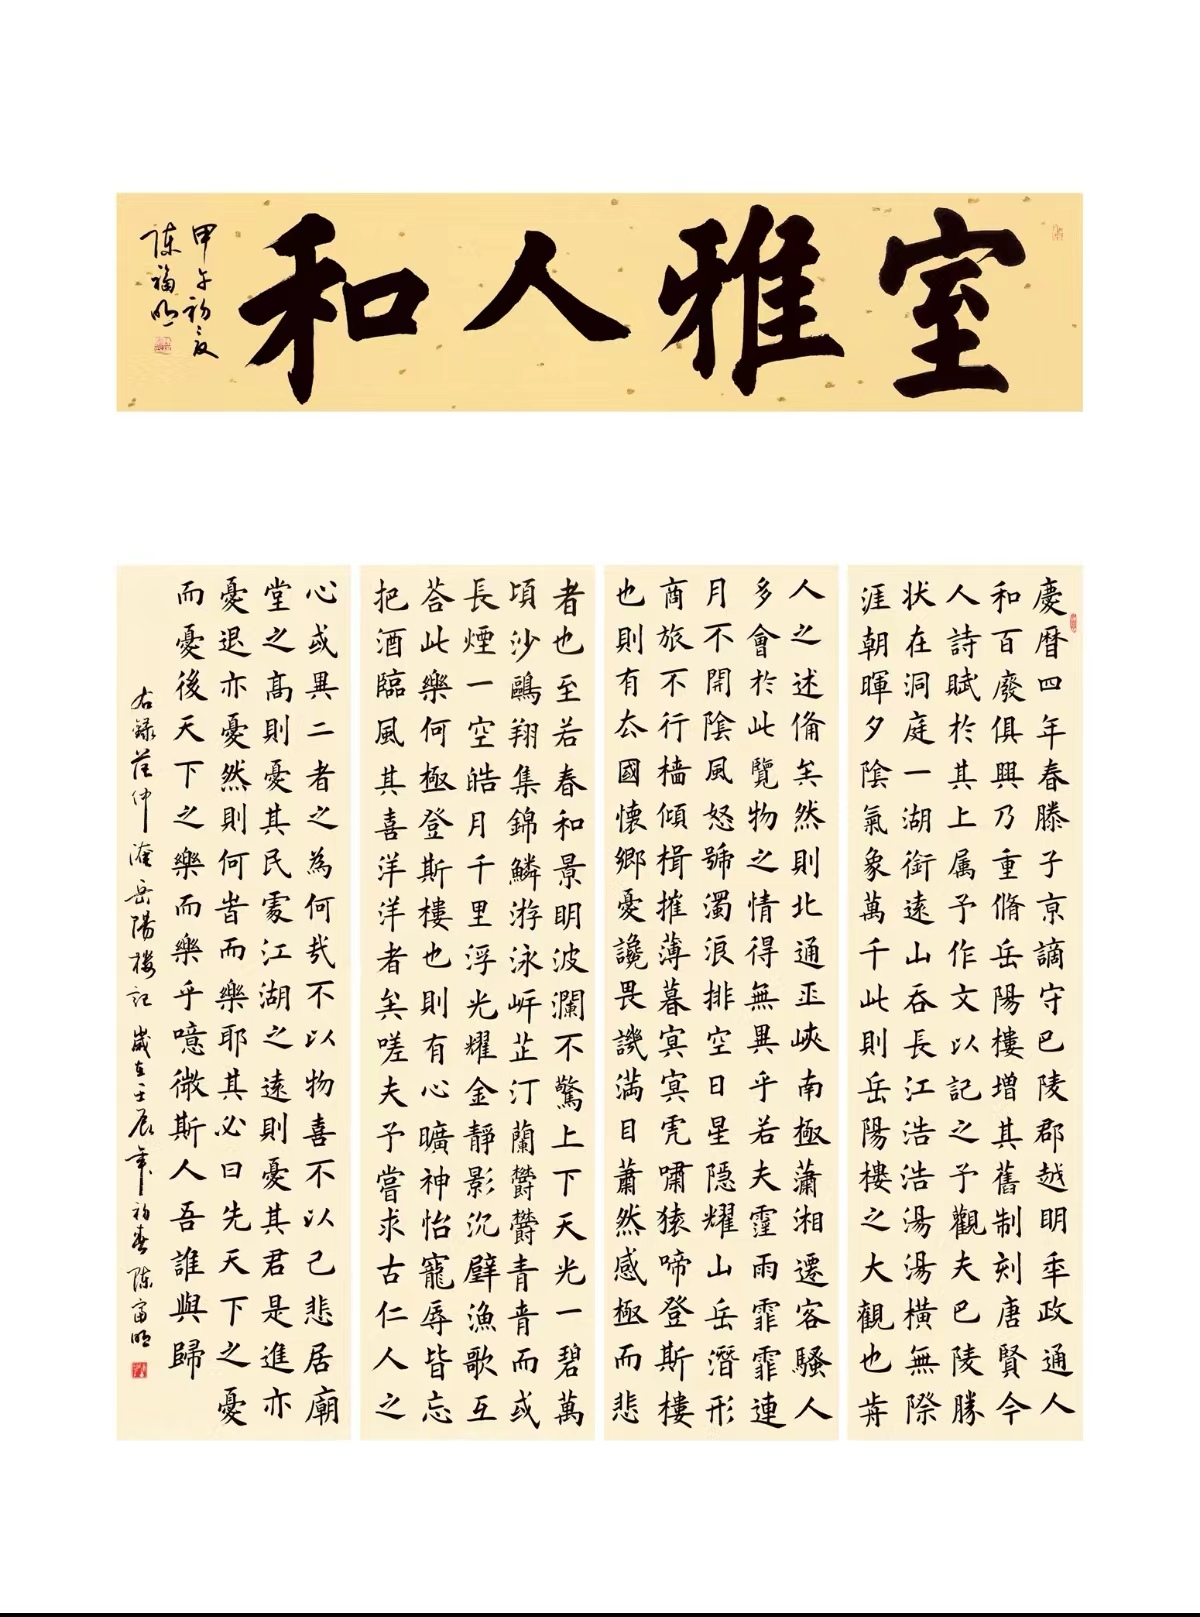 室雅人和
甲午初夏
陈福明
慶曆四年春滕子京謫守巴陵郡越明年政通人
和百廢俱興乃重脩岳陽樓增其舊制刻唐賢今
人詩賦於其上属予作文以記之予觀夫巴陵勝
状在洞庭一湖銜遠山吞長江浩浩湯湯橫無際
涯朝暉夕陰氣象萬千此則岳陽樓之大觀也前
人之述俻矣然則北通巫峽南極瀟湘遷客騷人
多會於此覽物之情得無異乎若夫霪雨霏霏連
月不開陰風怒號濁浪排空日星隱耀山岳潛形
商旅不行檣傾楫摧薄暮冥冥虎嘯猿啼登斯樓
也則有去國懷鄉憂讒畏譏滿目蕭然感極而悲
者也至若春和景明波瀾不驚上下天光一碧萬
頃沙鷗翔集錦鱗游泳岸芷汀蘭鬱鬱青青而或
長煙一空皓月千里浮光耀金靜影沉璧漁歌互
荅此樂何極登斯樓也則有心曠神怡寵辱皆忘
把酒臨風其喜洋洋者矣嗟夫予嘗求古仁人之
心或異二者之為何哉不以物喜不以己悲居廟
堂之高則憂其民處江湖之遠則憂其君是進亦
憂退亦憂然則何時而樂耶其必曰先天下之憂
而憂後天下之樂而樂乎噫微斯人吾誰與歸
右録范仲淹岳陽楼記歲在壬辰年初春陈富明